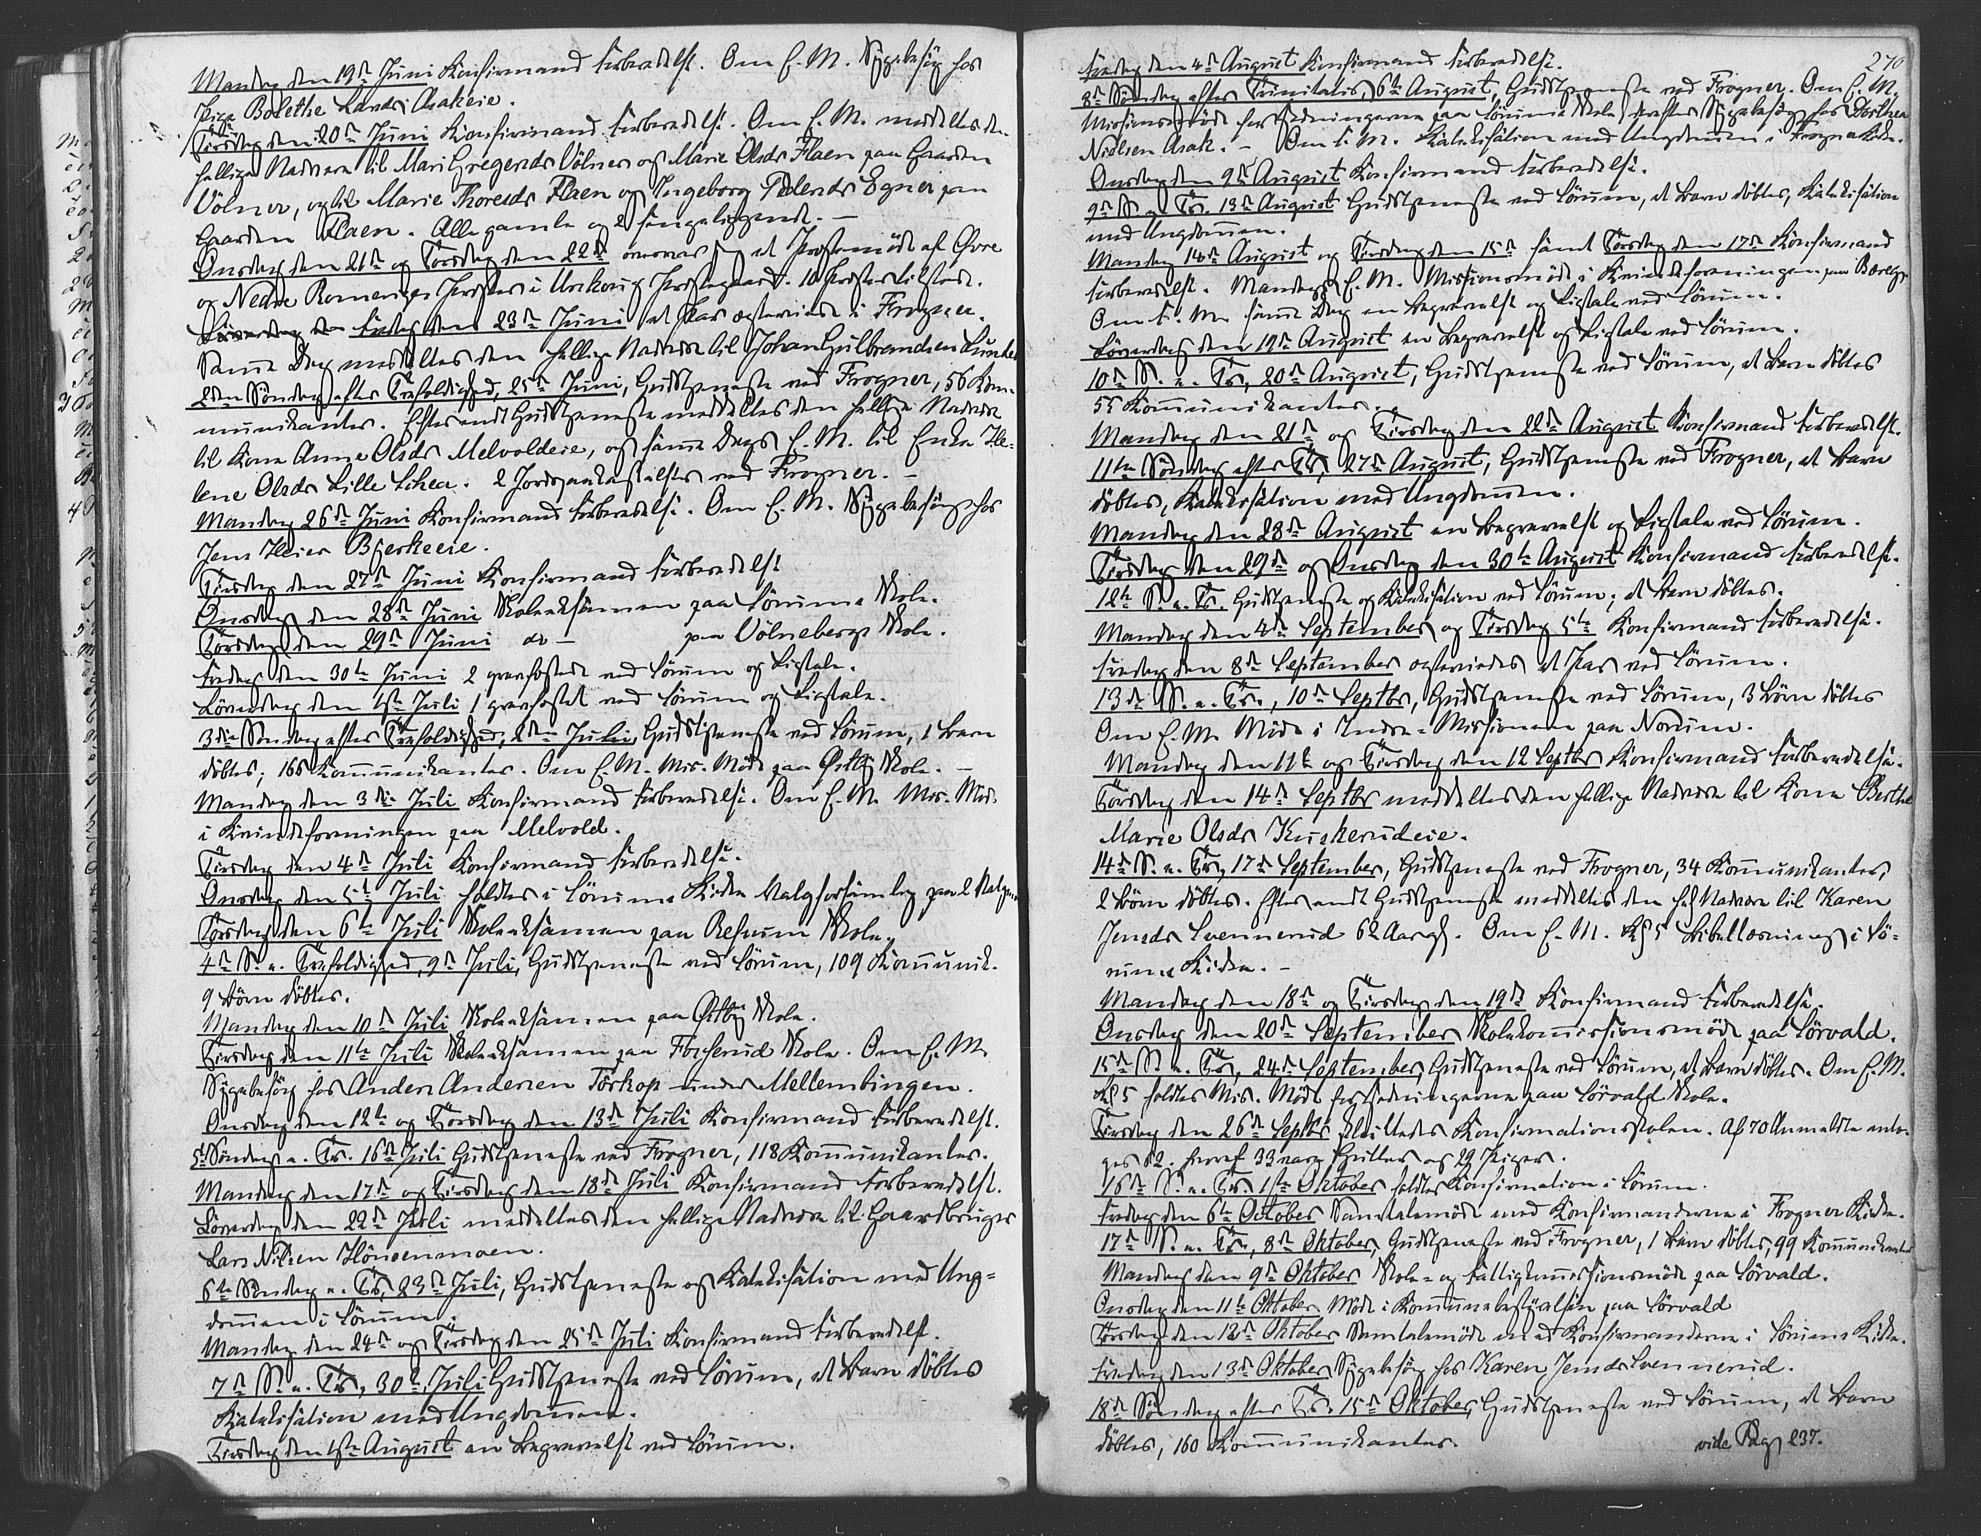 Mandag den 19de Juni Konfirmand Forberedelse. Om E. M. Sygebesøg hos
Pige Bolethe Larsd. Asakeie.
Tirsdag den 20de Juni Konfirmand Forberedelse. Om E. M. meddeltes den
hellige Nadvere til Mari Gregersds Völner og Marie Olsds Flaen paa Gaarden
Völner, og til Marie Thoresds Flaen og Ingeborg Pedersds Egner paa
Gaarden Flaen. Alle gamle og sengeliggende. —
Onsdag den 21de og Torsdag den 22de et Prestemöde af Øvre
og Nedre Romeriges Prester i Urskoug Prestegaard. 10 Prester tilstede.
Fredag den 23de Juni et Par ægteviet i Frogner.
Samme Dag meddeltes den hellige Nadvere til Johan Gulbrandsen
2den Söndag efter Trefoldighed, 25de Juni, Gudstjeneste ved Frogner, 56 Kom-
munikanter. Efter endt Gudstjeneste meddeltes den hellige Nadvere
til Kone Anne Olsds Melvoldeie, og samme Dags E. M. til Enke He-
lene Olsds Lille Skea. 2 Jordpaakastelser ved Frogner. —
Mandag 26de Juni Konfirmand Forberedelse. Om E. M. Sygebesøg hos
Jens Heier Bjerkeeie.
Tirsdag den 27de Juni Konfirmand Forberedelse
Onsdag den 28de Juni Skoleeksamen paa Sörums Skole.
Torsdag den 29de Juni do — paa Völnebergs Skole.
Fredag den 30te Juni 2 gravfæstede ved Sörum og Ligtale.
Löverdag den 1ste Juli 1 gravfæstet ved Sörum og Ligtale.
3die Söndag efter Trefoldighed, 2den Juli, Gudstjeneste ved Sörum, 1 Barn
döbtes; 166 Kommunikanter. Om E. M. Mis. Möde paa Østby Skole. —
Mandag den 3die Juli Konfirmand Forberedelse. Om E. M. Mis. Möde
i Kvindeforeningen paa Melvold.
Tirsdag den 4de Juli Konfirmand Forberedelse.
Onsdag den 5te Juli holdtes i Sörums Kirke Valgforsamling paa 2
Torsdag den 6te Juli Skoleeksamen paa Refsum Skole.
4de S. e. Trefoldighed, 9de Juli, Gudstjeneste ved Sörum, 109 Kommunik.
9 Börn döbtes.
Mandag den 10de Juli Skoleeksamen paa Østby Skole.
Tirsdag den 11te Juli Skoleeksamen paa Fosserud Skole. Om E. M.
Sygebesög hos Anders Andersen Törkop under Mellembingen.
Onsdag den 12te og Torsdag den 13de Juli Konfirmand Forberedelse.
5te Söndag e. Tr. 16de Juli Gudstjeneste ved Frogner, 118 Kommunikanter.
Mandag den 17de og Tirsdag den 18de Juli Konfirmand Forberedelse.
Löverdag den 22de Juli meddeltes den hellige Nadvere til Gaardbruger
Lars Nilsen Hönsenmoen.
6te Söndag e. Tr. 23de Juli, Gudstjeneste og Katekisation med Ung-
dommen i Sörum.
Mandag den 24de og Tirsdag den 25de Juli Konfirmand Forberedelse.
7de S. e. Tr., 30te Juli Gudstjeneste ved Sörum, et Barn döbtes
Katekisation med Ungdommen.
Tirsdag den 1ste August en Begravelse ved Sörum.
270
Fredag den 4de August Konfirmand Forberedelse.
8de Söndag efter Trinitatis, 6te August, Gudstjeneste ved Frogner. Om E. M.
Missionsmöde for Hedningerne paa Sörums Skole, derefter Sygebesög hos Dorthea
Nielsen Asak. — Om F. M. Katekisation med Ungdommen i Frogner Kirke.
Onsdag den 9de August Konfirmand Forberedelse.
9de S. e. Tr. 13de August Gudstjeneste ved Sörum, et Barn döbtes, Katekisation
med Ungdommen.
Mandag 14de August og Tirsdag den 15de samt Torsdag den 17de Konfirmand
Forberedelse. Mandags E. M. Missionsmöde i Kvindeforeningen paa
Om F. M. samme Dag en Begravelse og Ligtale ved Sörum.
Löverdag den 19de August en Begravelse og Ligtale ved Sörum.
10de S. e. Tr., 20de August, Gudstjeneste ved Sörum, et Barn döbtes
55 Kommunikanter.
Mandag den 21de og Tirsdag den 22de August Konfirmand Forberedelse.
11te Söndag efter Tr., 27de August, Gudstjeneste ved Frogner, et Barn
döbtes, Katekisation med Ungdommen.
Mandag den 28de August en Begravelse og Ligtale ved Sörum.
Tirsdag den 29de og Onsdag den 30te August Konfirmand Forberedelse.
12te S. e. Tr. Gudstjeneste og Katekisation ved Sörum; et Barn döbtes.
Mandag den 4de September og Tirsdag 5te Konfirmand Forberedelse.
Fredag den 8de September ægteviedes et Par ved Sörum.
13de S. e. Tr., 10de Septbr, Gudstjeneste ved Sörum, 3 Börn döbtes
Om E. M. Möde i Indre-Missionen paa Nordum.
Mandag den 11te og Tirsdag den 12 Septbr Konfirmand Forberedelse.
Torsdag den 14de Septbr meddeltes den hellige Nadvere til Kone Berthe
Marie Olsds Kuskerudeie.
14de S. e. Tr., 17de September, Gudstjeneste ved Frogner, 34 Kommunikanter,
2 Börn döbtes. Efter endt Gudstjeneste meddeltes den hel Nadvere til Karen
Jensds Svennerud 62 Aar gl. Om E. M. Kl 5 Bibellæsning i Sö-
rums Kirke. —
Mandag den 18de og Tirsdag den 19de Konfirmand Forberedelse.
Onsdag den 20de September Skolekommissionsmöde paa Sörvald.
15de S. e. Tr., 24de September, Gudstjeneste ved Sörum, et Barn döbtes. Om E. M.
Kl 5 holdtes Mis. Möde for Hedningerne paa Sörvald Skole.
Tirsdag den 26de Septbr sluttedes Konfirmationsskolen. Af 70 Anmeldte anto-
ges 62. hvoraf 33 vare Gutter og 29 Piger.
16de S. e. Tr. 1ste Oktober holdtes Konfirmation i Sörum.
Fredag den 6te October Samtalemöde med Konfirmanderne i Frogner Kirke.
17de S. e. Tr., 8de Oktober, Gudstjeneste ved Frogner, 1 Barn döbtes, 99 Kommunikanter
Mandag den 9de Oktober Skole- og Fattigkommissionsmöde paa Sörvald.
Onsdag den 11te Oktober Möde i Kommunebestyrelsen paa Sörvald
Torsdag den 12de Oktober Samtalemöde med Konfirmanderne i Sörums Kirke.
Fredag den 13de Oktober Sygebesög hos Karen Jensds Svennerud.
18de Söndag efter Tr. 15de Oktober, Gudstjeneste ved Sörum, et Barn
döbtes, 160 Kommunikanter. vide Pag 237.